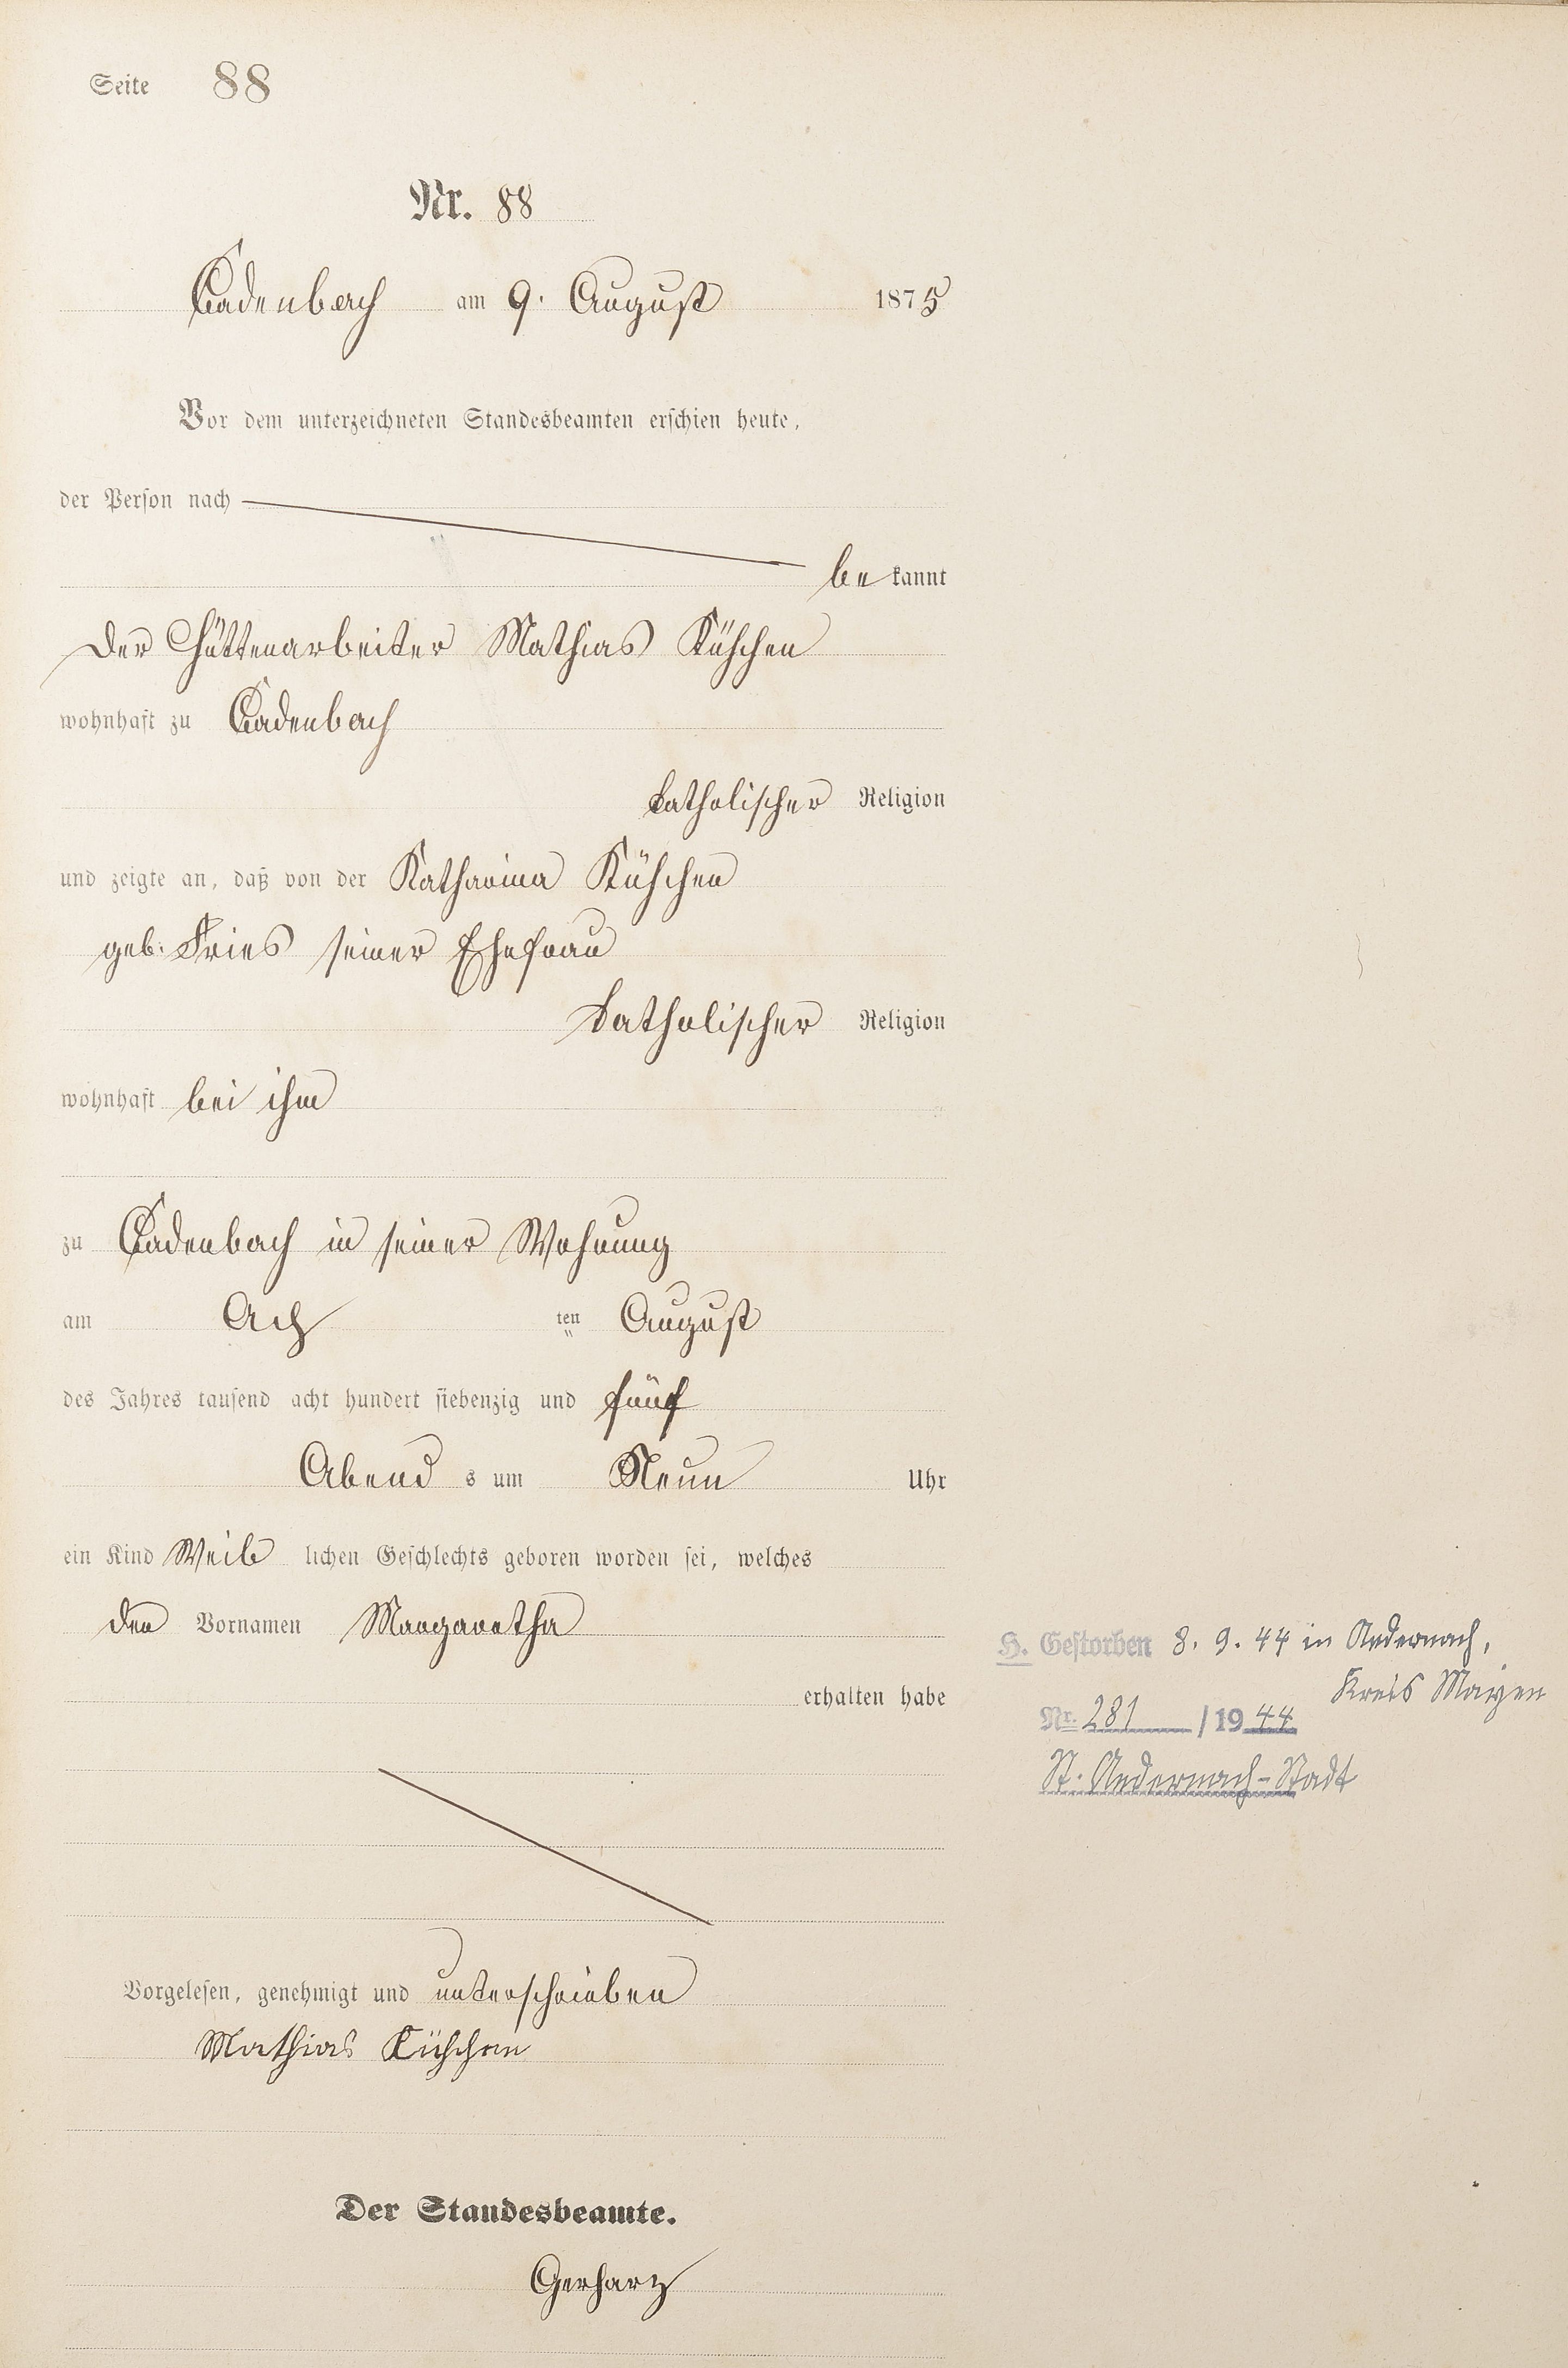 Seite 88
Nr. 88
Cadenbach am 9. August 1875
Vor dem unterzeichneten Standesbeamten erschien heute,
der Person nach
be kannt
Der Hüttenarbeiter Mathias Kühchen
wohnhaft zu Cadenbach
katholischer Religion
und zeigte an, daß von der Katharina Kühchen
geb: Fries seiner Ehefrau
katholischer Religion
wohnhaft bei ihm
zu Cadenbach in seiner Wohnung
am Ach ten August
des Jahres tausend acht hundert siebenzig und fünf
Abend s um Neun Uhr
ein Kind Weib lichen Geschlechts geboren worden sei, welches
den Vornamen Margaretha
erhalten habe
H. Gestorben 8. 9. 44 in Andernach,
Kreis Mayen
Nr. 281 /1944
St. Andernach-Stadt
Vorgelesen, genehmigt und unterschrieben
Mathias Kühchen
Der Standesbeamte.
Gerharz